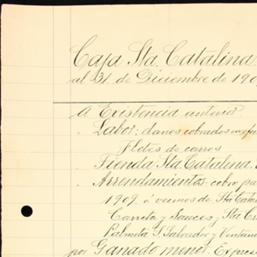 Caja Sta. Catalina
al 31 de Diciembre de 190
A Existencia anterior
" Labor: daños cobrados
fletes de carros
Tienda Sta Catalina.
" Arrendamientos cobr. pa
1909 á vecinos de Sta Cata
Canela y Sauces y Sta Cr
Palmita S. Salvador y Ventan
por Ganado menor. Expres